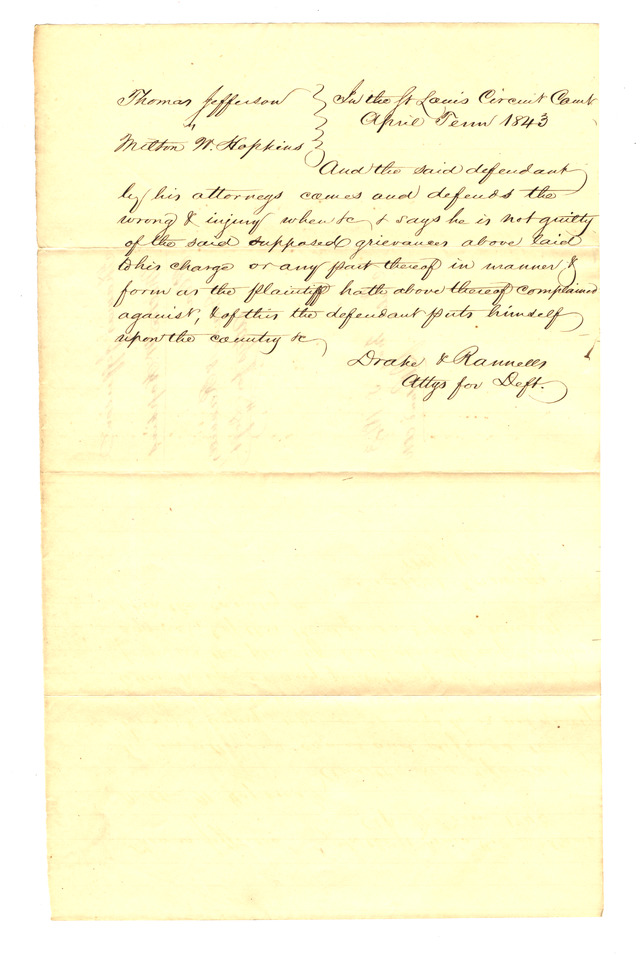 Thomas Jefferson } In the St Louis Circuit Court
" } April Term 1843
Milton W. Hopkins }
And the said defendant
by his attorneys comes and defends the
wrong & injury when &c & says he is not guilty
of the said supposed grievances above laid
to his charge or any part thereof in manner &
form as the plaintiff hath above thereof complained
against, & of this the defendant puts himself
upon the country &c
Drake & Rannells
Attys for Deft.